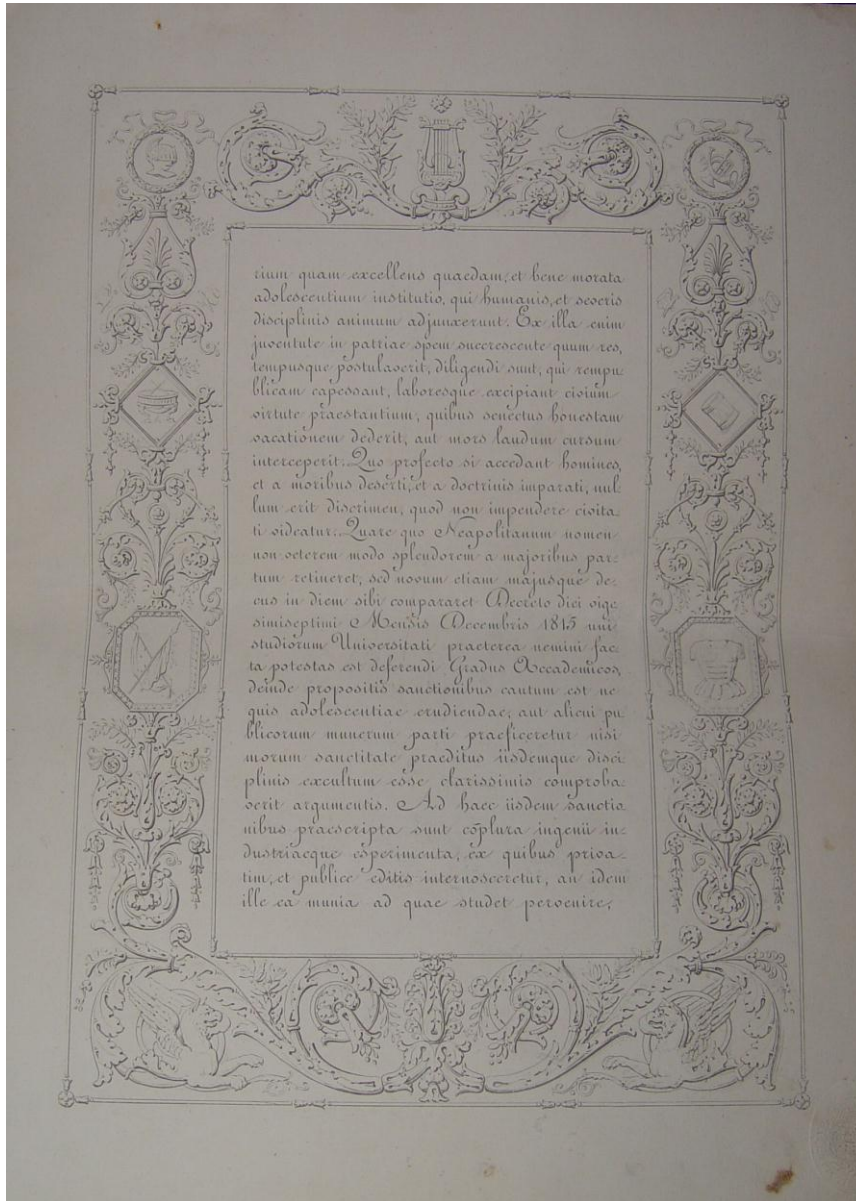 rium quam excellens quaedam, et bene morata
adolescentium institutio, qui humanis, et severis
disciplinis animum adjunxerunt. Ex illa enim
juventute in patriae spem succrescente quum res,
tempusque postulaverit, diligendi sunt, qui rempu
blicam capessant, laboresque excipiant civium
virtute praestantium, quibus senectus honestam
vacationem dederit, aut mors laudum cursum
interceperit. Quo profecto si accedant homines,
et a moribus deserti, et a doctrinis imparati, nul
lum erit discrimen, quod non impendere civita
ti videatur. Quare quo Neapolitanum nomen
non veterem modo splendorem a majoribus par
tum retineret, sed novum etiam majusque de
cus in diem sibi compararet Decreto diei vige
simiseptimi Mensis Decembris 1815 uni
studiorum Universitati praeterea nemini fac
ta potestas est deferendi Gradus Accademicos,
deinde propositis sanctionibus cautum est ne
quis adolescentiae erudiendae, aut alicui pu
blicorum munerum parti praeficeretur nisi
morum sanctitate praeditus iisdemque disci
plinis excultum esse clarissimis comproba
verit argumentis. Ad haec iisdem sanctio
nibus praescripta sunt cōplura ingenii in=
dustriaeque esperimenta, ex quibus priva=
tim, et publice editis internosceretur, an idem
ille ea munia ad quae studet pervenire,